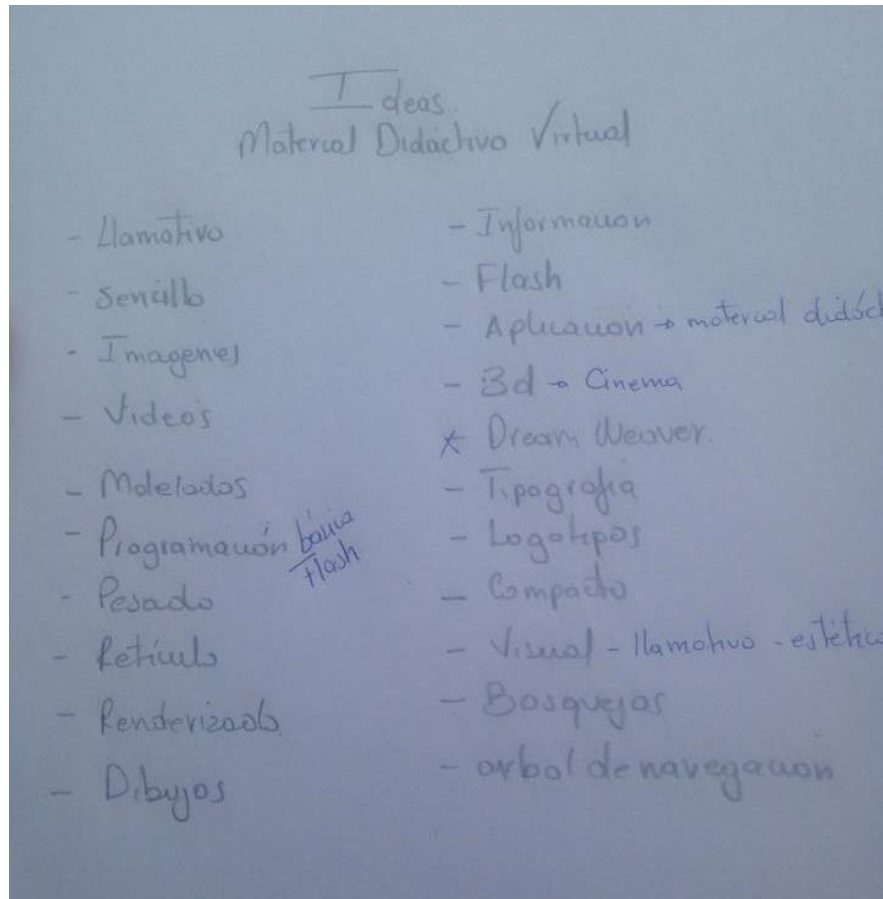 Ideas.
Material Didáctivo Virtual
- Llamativo
- Sencillo
- Imagenes
- Videos
- Modelados
- Programación básica
Flash
- Pesado
- Retículo
- Renderizado
- Dibujos
- Información
- Flash
- Aplicación → material didáct
- 3d → Cinema
* Dream Weaver.
- Tipografia
- Logotipos
- Compacto
- Visual - llamativo - estétic
- Bosquejos
- arbol de navegación